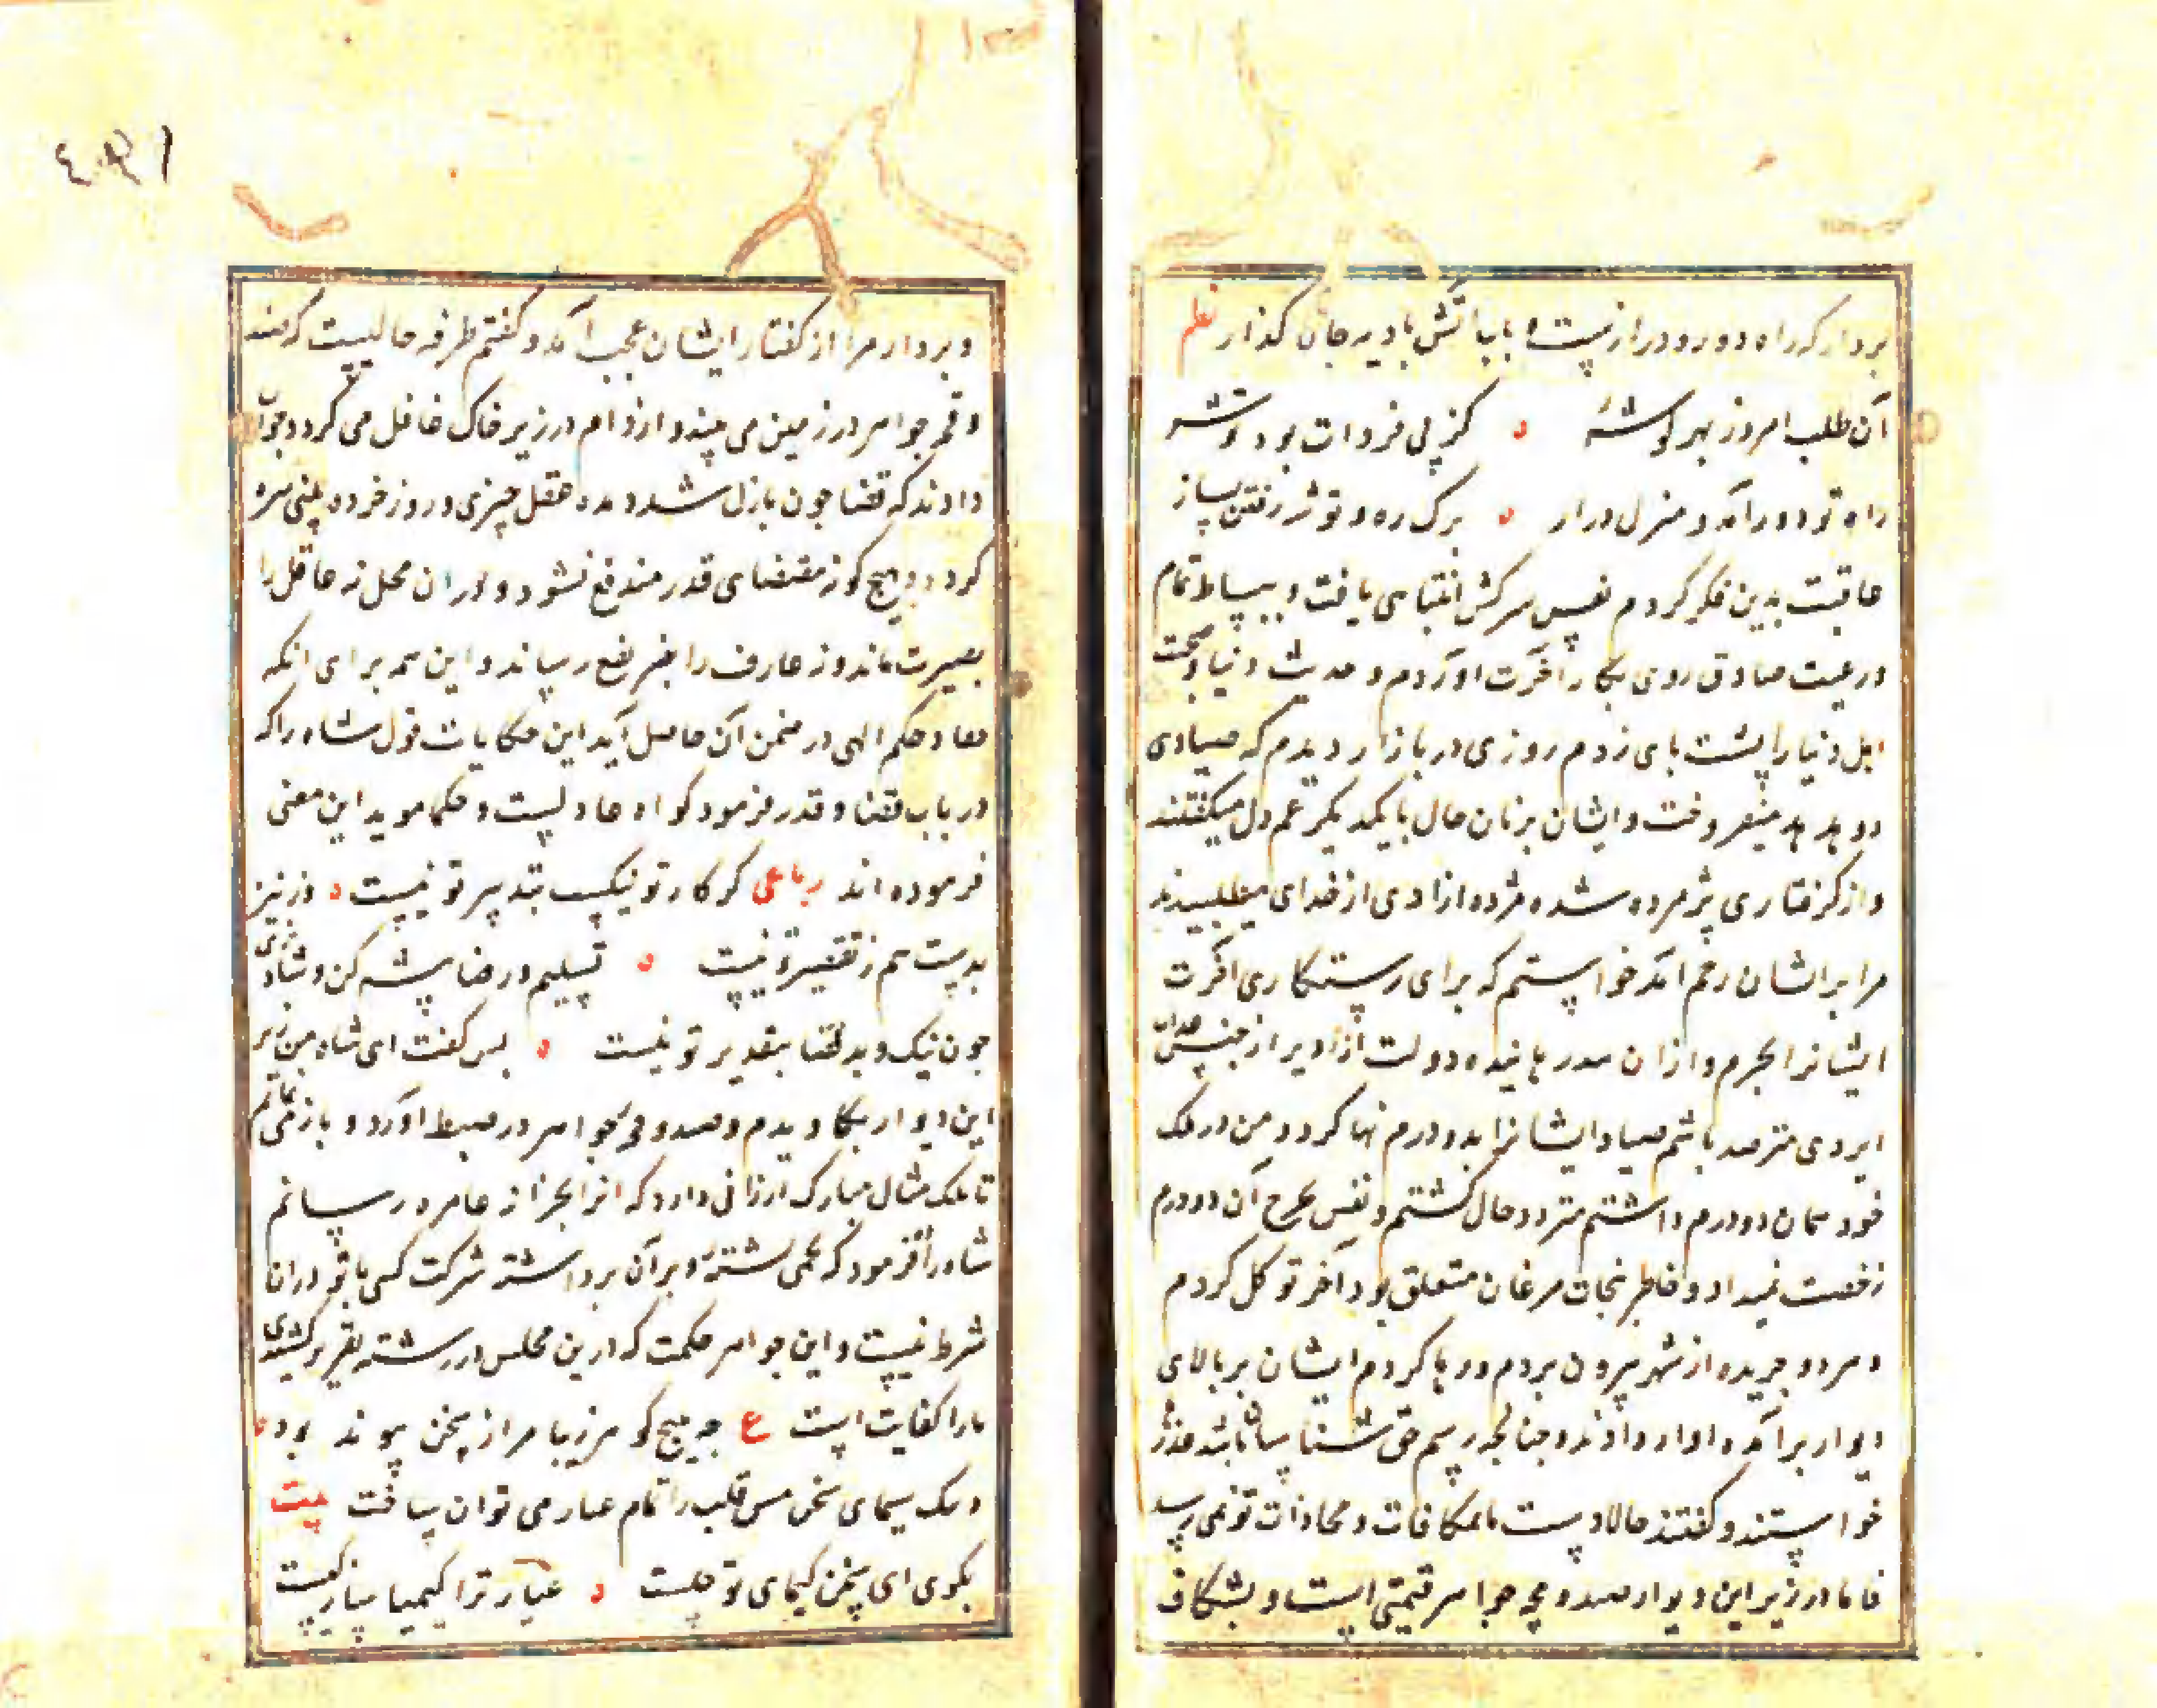 بردار که راه دور و دراز پست و با پا آتش بادیه جان کذار نظم
آن طلب امروز بهر کوشهٔ ه کز پی فردات بود توشهٔ
راه تو دور آمد و منزل دراز ه برک ره و توشه رفتن بساز
عاقبت بدین فکر کردم نفس سرکش انتباهی یافت و تمام
در غبت صادق روی بکار آخرت اوردم و حدیث دنیا و صحبت
اهل دنیا را پشت بای زدم روزی در بازار دیدم که صیادی
دو هدهد میفروخت و ایشان بزبان حال بایکدیکر غم دل میکفتند
و از کرفتاری پژمرده شده مژده ازادی از خدای میطلبیدند
مرا بر ایشان رحم امد خواستم که برای رستکاری اخرت
ایشانرا بخرم و از ان دولت ازادی از عذاب
ایزدی مترصد باشم صیاد ایشانرا بدو درم بها کرد و من در ملک
خود همان دو درم داشتم متردد حال کشتم و نفس بخرج آن دو درم
رخصت نمیداد و خاطر بنجات مرغان متعلق بود آخر توکل کردم
و هر دو خریده از شهر بیرون بردم و رها کردم ایشان بر بالای
دیوار برآمده اواز دادند و جنانجه رسم حق شناسان باشد عذر
خواستند و کفتند حالا دست ما بمکافات و مجازات تو نمی رسد
فاما در زیر این دیوار صندوقچه جواهر قیمتی است بشکاف
و بردار مرا از کفتار ایشان عجب آمد و کفتم طرفه حالیست که
و قچه جواهر در زمین می بیند و از دام در زیر خاک غافل می کردد جواب
دادند که قضا جون نازل شد دیده عقل خیزی و روز خرده بینی تیره
کردد و بهیچ کونه مقتضای قدر مندفع نشود و در ان محل نه عاقل را
بصیرت ماند و نه عارف را بصر نفع رساند و این همه برای انکه
نفاذ حکم الهی در ضمن آن حاصل آید این حکایات قول شاه را که
در باب قضا و قدر فرمود کواه عادلست و حکما موید این معنی
فرموده اند رباعی کر کار تو نیکست بتدبیر تو نیست ه ور نیز
بدست هم ز تقصیر تو نیست ه تسلیم و رضا پیشه کن و شاد بزی
جون نیک و بد قضا بتقدیر تو نیست ه پس کفت ای شاه من زیر
این دیوار بکاویدم و صندوقچه جواهر در ضبط اوردم و باز می نمایم
تا ملک مثال مبارک ارزانی دارد که انرا بخزانه عامره رسانم
شاه فرمود که تخمی کشتهٔ و بر آن برداشته شرکت کسی با تو در ان
شرط نیست و این جواهر حکمت که درین مجلس در رشته تقریر کشیدی
ما را کفایت است ع چه هیچ کوهر زیبا تر از سخن نبود
و بیک کیمیای سخن مس قلب را تمام عیار می توان ساخت بیت
بکوی ای سخن کیمیای تو چیست ه عیار ترا کیمیا ساز کیست